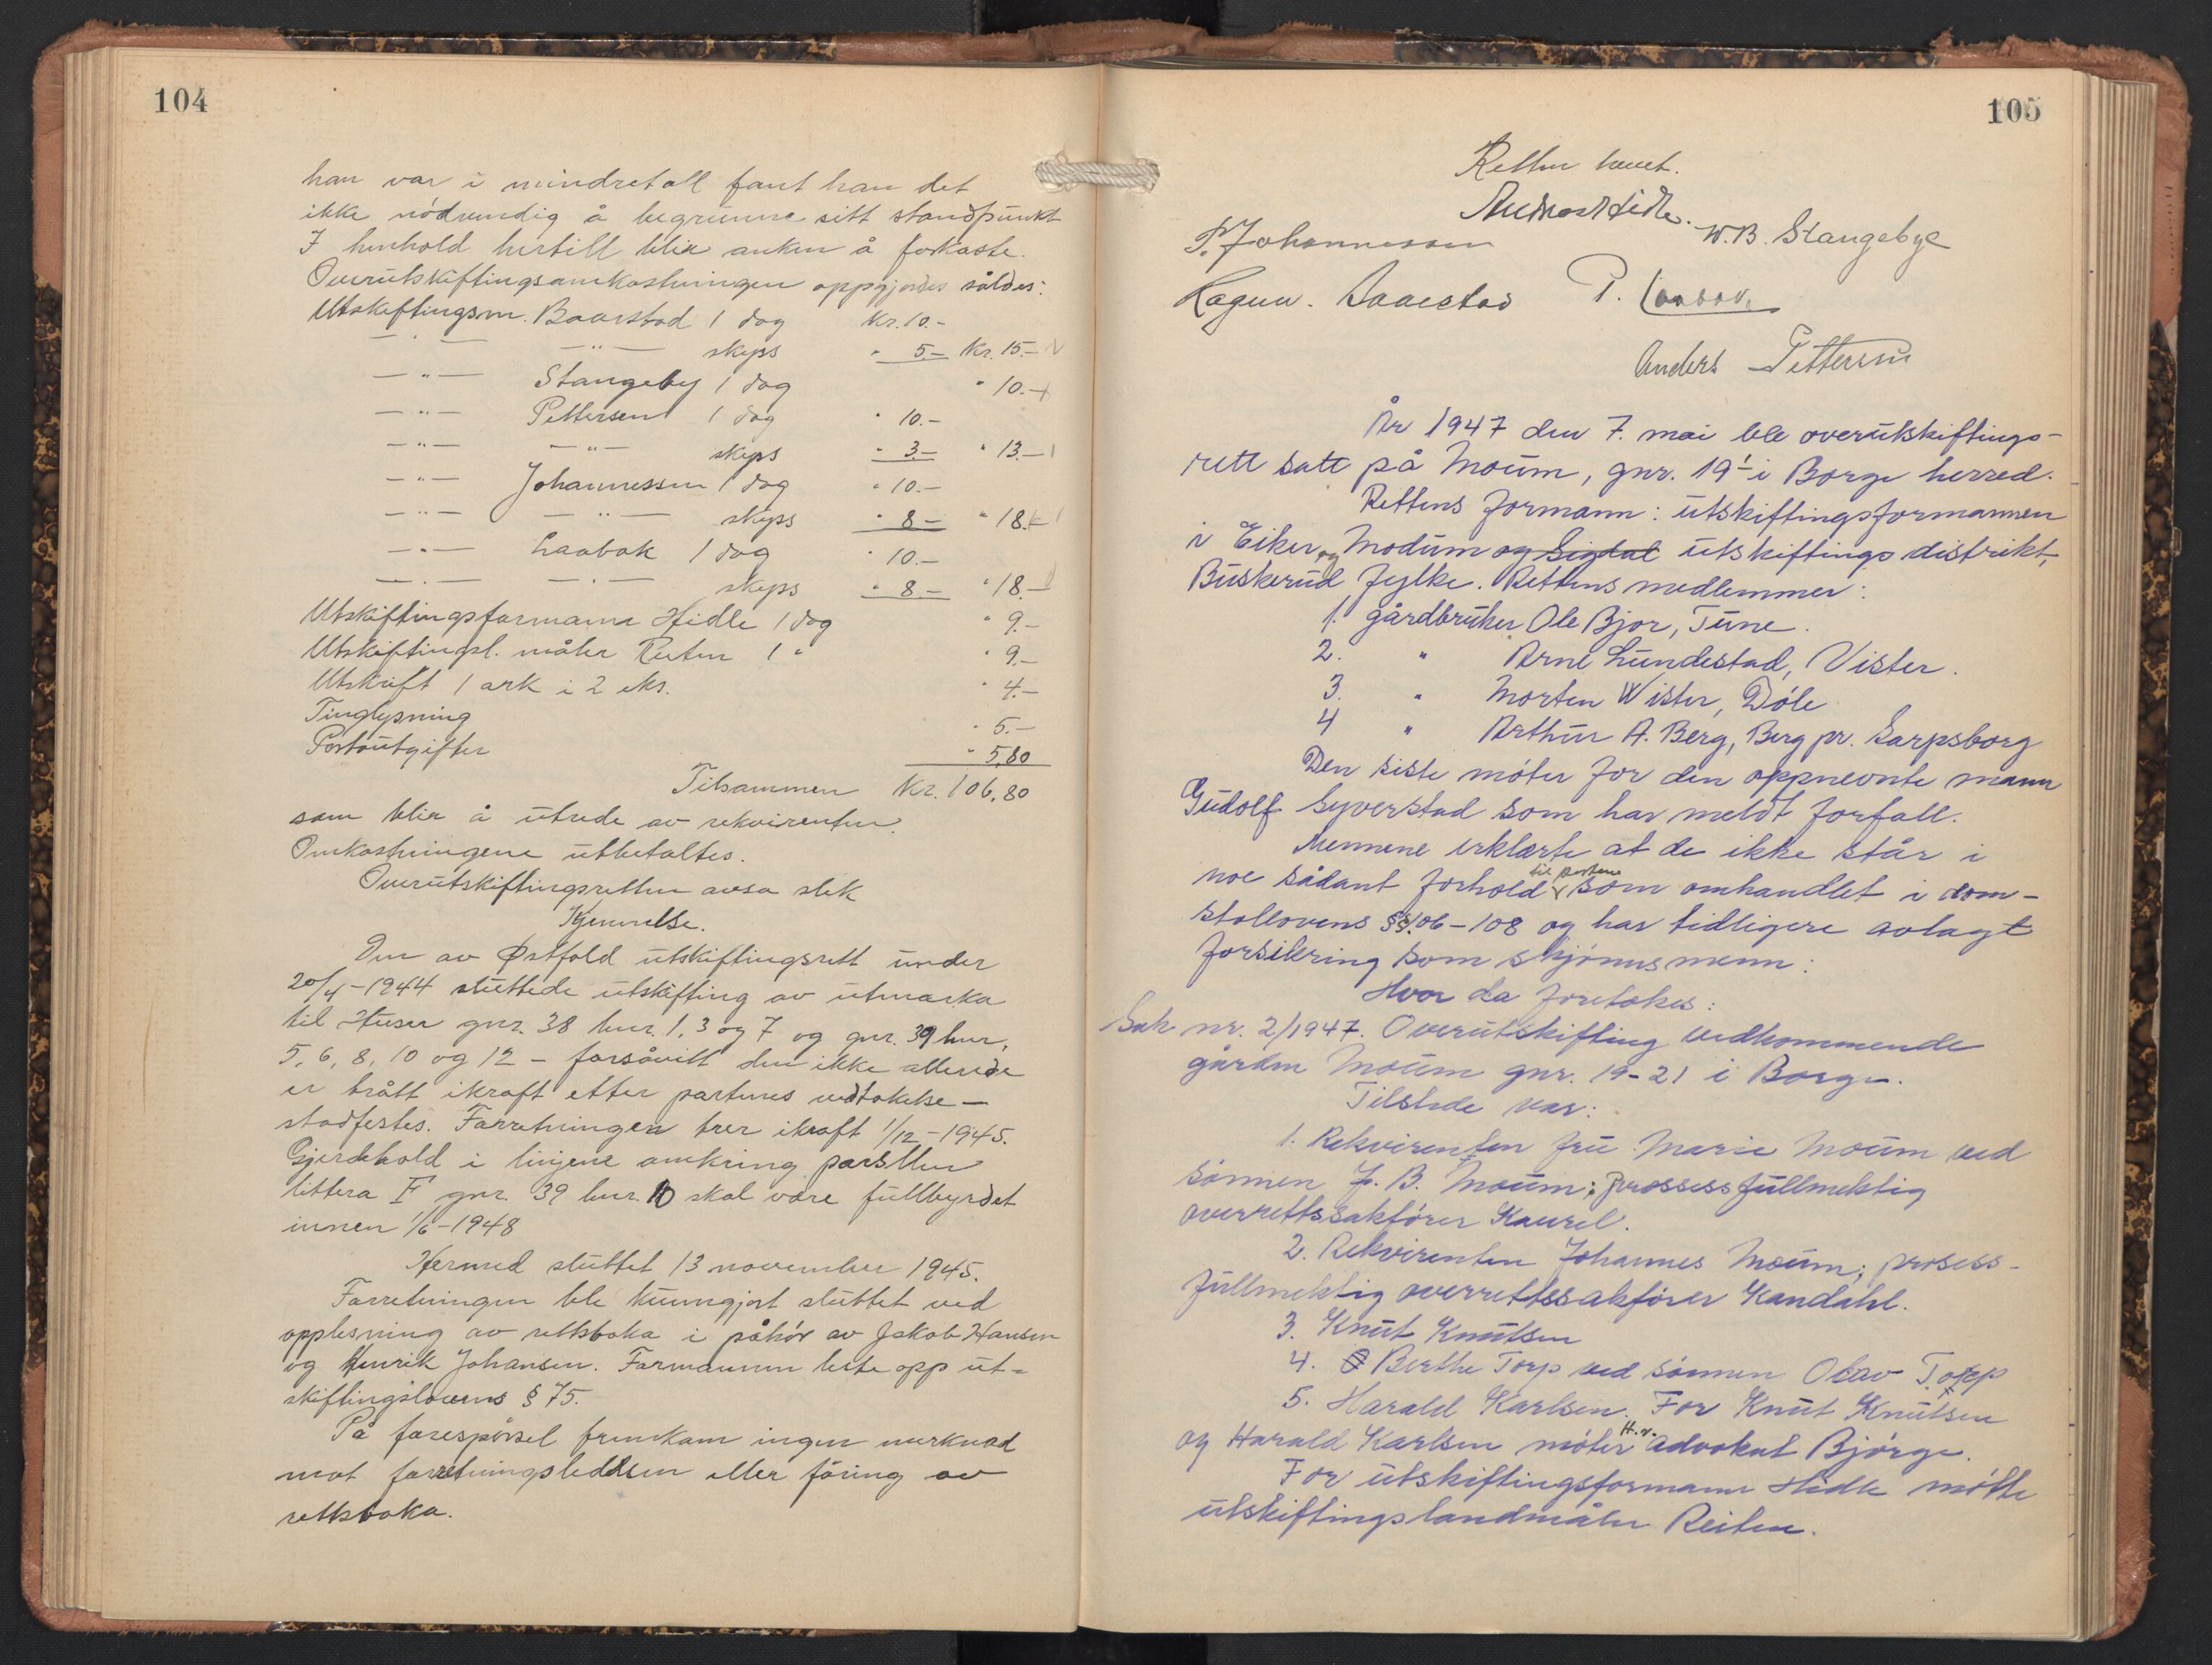 104
han var i mindretall fant han det
ikke nödvendig å begrunne sitt standpunkt
I henhold hertill blir anken å forkaste.
Overutskiftingsomkostningen oppgjordes således:
Utskiftingsm. Baarstad 1 dag Kr. 10.-
— " — — " — skyss " 5.- Kr. 15.-
— " — Stangeby 1 dag " 10.-
— " — Pettersen 1 dag " 10.-
— " — — " — skyss " 3.- " 13.-
— " — Johannessen 1 dag " 10.-
— " — — " — skyss " 8.- " 18.-
— " — Laabak 1 dag " 10.-
— " — — " — skyss " 8.- " 18.-
Utskiftingsformann Hidle 1 dag " 9.-
Utskiftingsl. måler Reiten 1 " " 9.-
Utskrift 1 ark i 2 eks. " 4.-
Tinglysning " 5.-
Portoutgifter " 5,80
Tilsammen Kr. 106,80
som blir å utrede av rekvirenten.
Omkostningene utbetaltes.
Overutskiftingsretten avsa slik
Kjennelse.
Den av Østfold utskiftingsrett under
20/4-1944 sluttede utskifting av utmarka
til Huser gnr. 38 bnr. 1, 3 og 7 og gnr. 39 bnr.
5, 6, 8, 10 og 12 – forsåvitt den ikke allerede
er trått ikraft etter partenes vedtakelse –
stadfestes. Forretningen trer ikraft 1/12-1945.
Gjerdehold i linjene omkring parsellen
littera F gnr. 39 bnr. 10 skal være fullbyrdet
innen 1/6-1948
Hermed sluttet 13 november 1945.
Forretningen ble kunngjort sluttet ved
opplesning av rettsboka i påhör av Jakob Hansen
og Henrik Johansen. Formannen leste opp ut-
skiftingslovens § 75.
På forespørsel fremkom ingen merknad
mot forretningsledelsen eller föring av
rettsboka.
105
Retten hevet.
Andreas Hidle.
P. Johannessen W.B. Stangebye
Ragnv. Baarstad P.
Anders Pettersen
År 1947 den 7. mai ble overutskiftings-
rett satt på Moum, gnr. 19 1 i Borge herred.
Rettens formann: utskiftingsformannen
i Eiker og Modum og Sigdal utskiftingsdistrikt,
Buskerud fylke. Rettens medlemmer:
1. gårdbruker Ole Bjor, Tune.
2. " Arne Lundestad, Vister.
3. " Morten Wister, Döle
4 " Arthur A. Berg, Berg pr. Sarpsborg
Den siste möter for den oppnevnte mann
Gudolf Syverstad som har meldt forfall.
Mennene erklærte at de ikke står i
noe sådant forhold til partene som omhandlet i dom-
stollovens §§ 106-108 og har tidligere avlagt
forsikring som skjönnsmenn:
Hvor da foretokes:
Sak nr. 2/1947. Overutskifting vedkommende
gården Moum gnr. 19-21 i Borge.
Tilstede var:
1. Rekvirenten fru Marie Moum ved
sönnen J. B. Moum; prossessfullmektig
overrettssakförer Kaurel.
2. Rekvirenten Johannes Moum; prosess-
fullmektig overrettssakförer Kandahl.
3. Knut Knutsen
4. Berthe Torp ved sönnen Olav Torp
5. Harald Karlsen. For Knut Knutsen
og Harald Karlsen möter H.r. advokat Björge.
For utskiftingsformann Hidle mötte
utskiftingslandmåler Reiten.